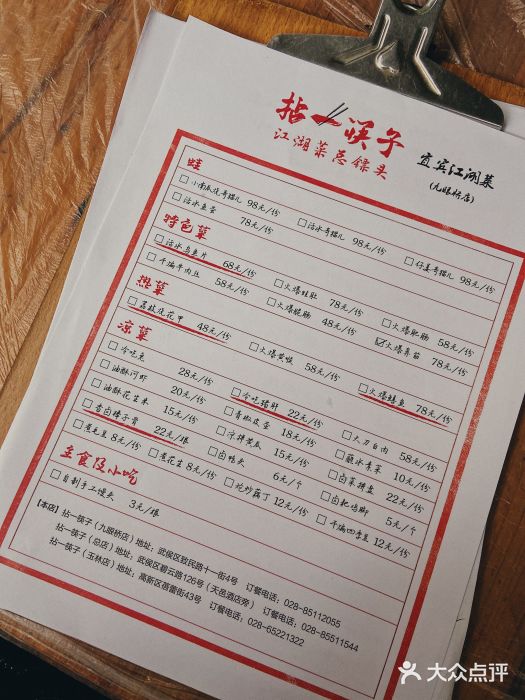 拈一筷子
江湖菜总镖头
宜宾江湖菜
(九眼桥店)
蛙
□小南瓜烧哥猫儿 98元/份 □活水哥猫儿 98元/份 □仔姜哥猫儿 98元/份
□活水鱼荟 78元/份
特色菜
□活水乌鱼片 68元/份 □火爆蛙肚 78元/份 □火爆肥肠 58元/份
□干煸牛肉丝 58元/份 □火爆腰肠 48元/份 ☑火爆鳝苗 78元/份
热菜
□荔枝烧花甲 48元/份 □火爆黄喉 58元/份 □火爆鳝鱼 78元/份
凉菜
□冷吃兔 28元/份 □冷吃猪肝 22元/份 □大刀白肉 58元/份
□油酥河虾 20元/份 □青椒皮蛋 18元/份 □蘸水素菜 10元/份
□油酥花生米 15元/份 □凉拌黄瓜 15元/份 □卤菜拼盘 22元/份
□香卤棒子骨 22元/根 □卤鸭头 6元/个 □卤鸡脚 5元/个
□煮毛豆 8元/份 □煮花生 8元/份 □炝炒藕丁 12元/份 □干煸四季豆 12元/份
主食及小吃
□自制手工馒头 3元/根
【本店】
拈一筷子（九眼桥店）地址：武侯区致民路十一街4号 订餐电话：028-85112055
拈一筷子（总店）地址：武侯区碧云路126号（天邑酒店旁） 订餐电话：028-85511544
拈一筷子（玉林店）地址：高新区蓓蕾街43号 订餐电话：028-65221322
大众点评